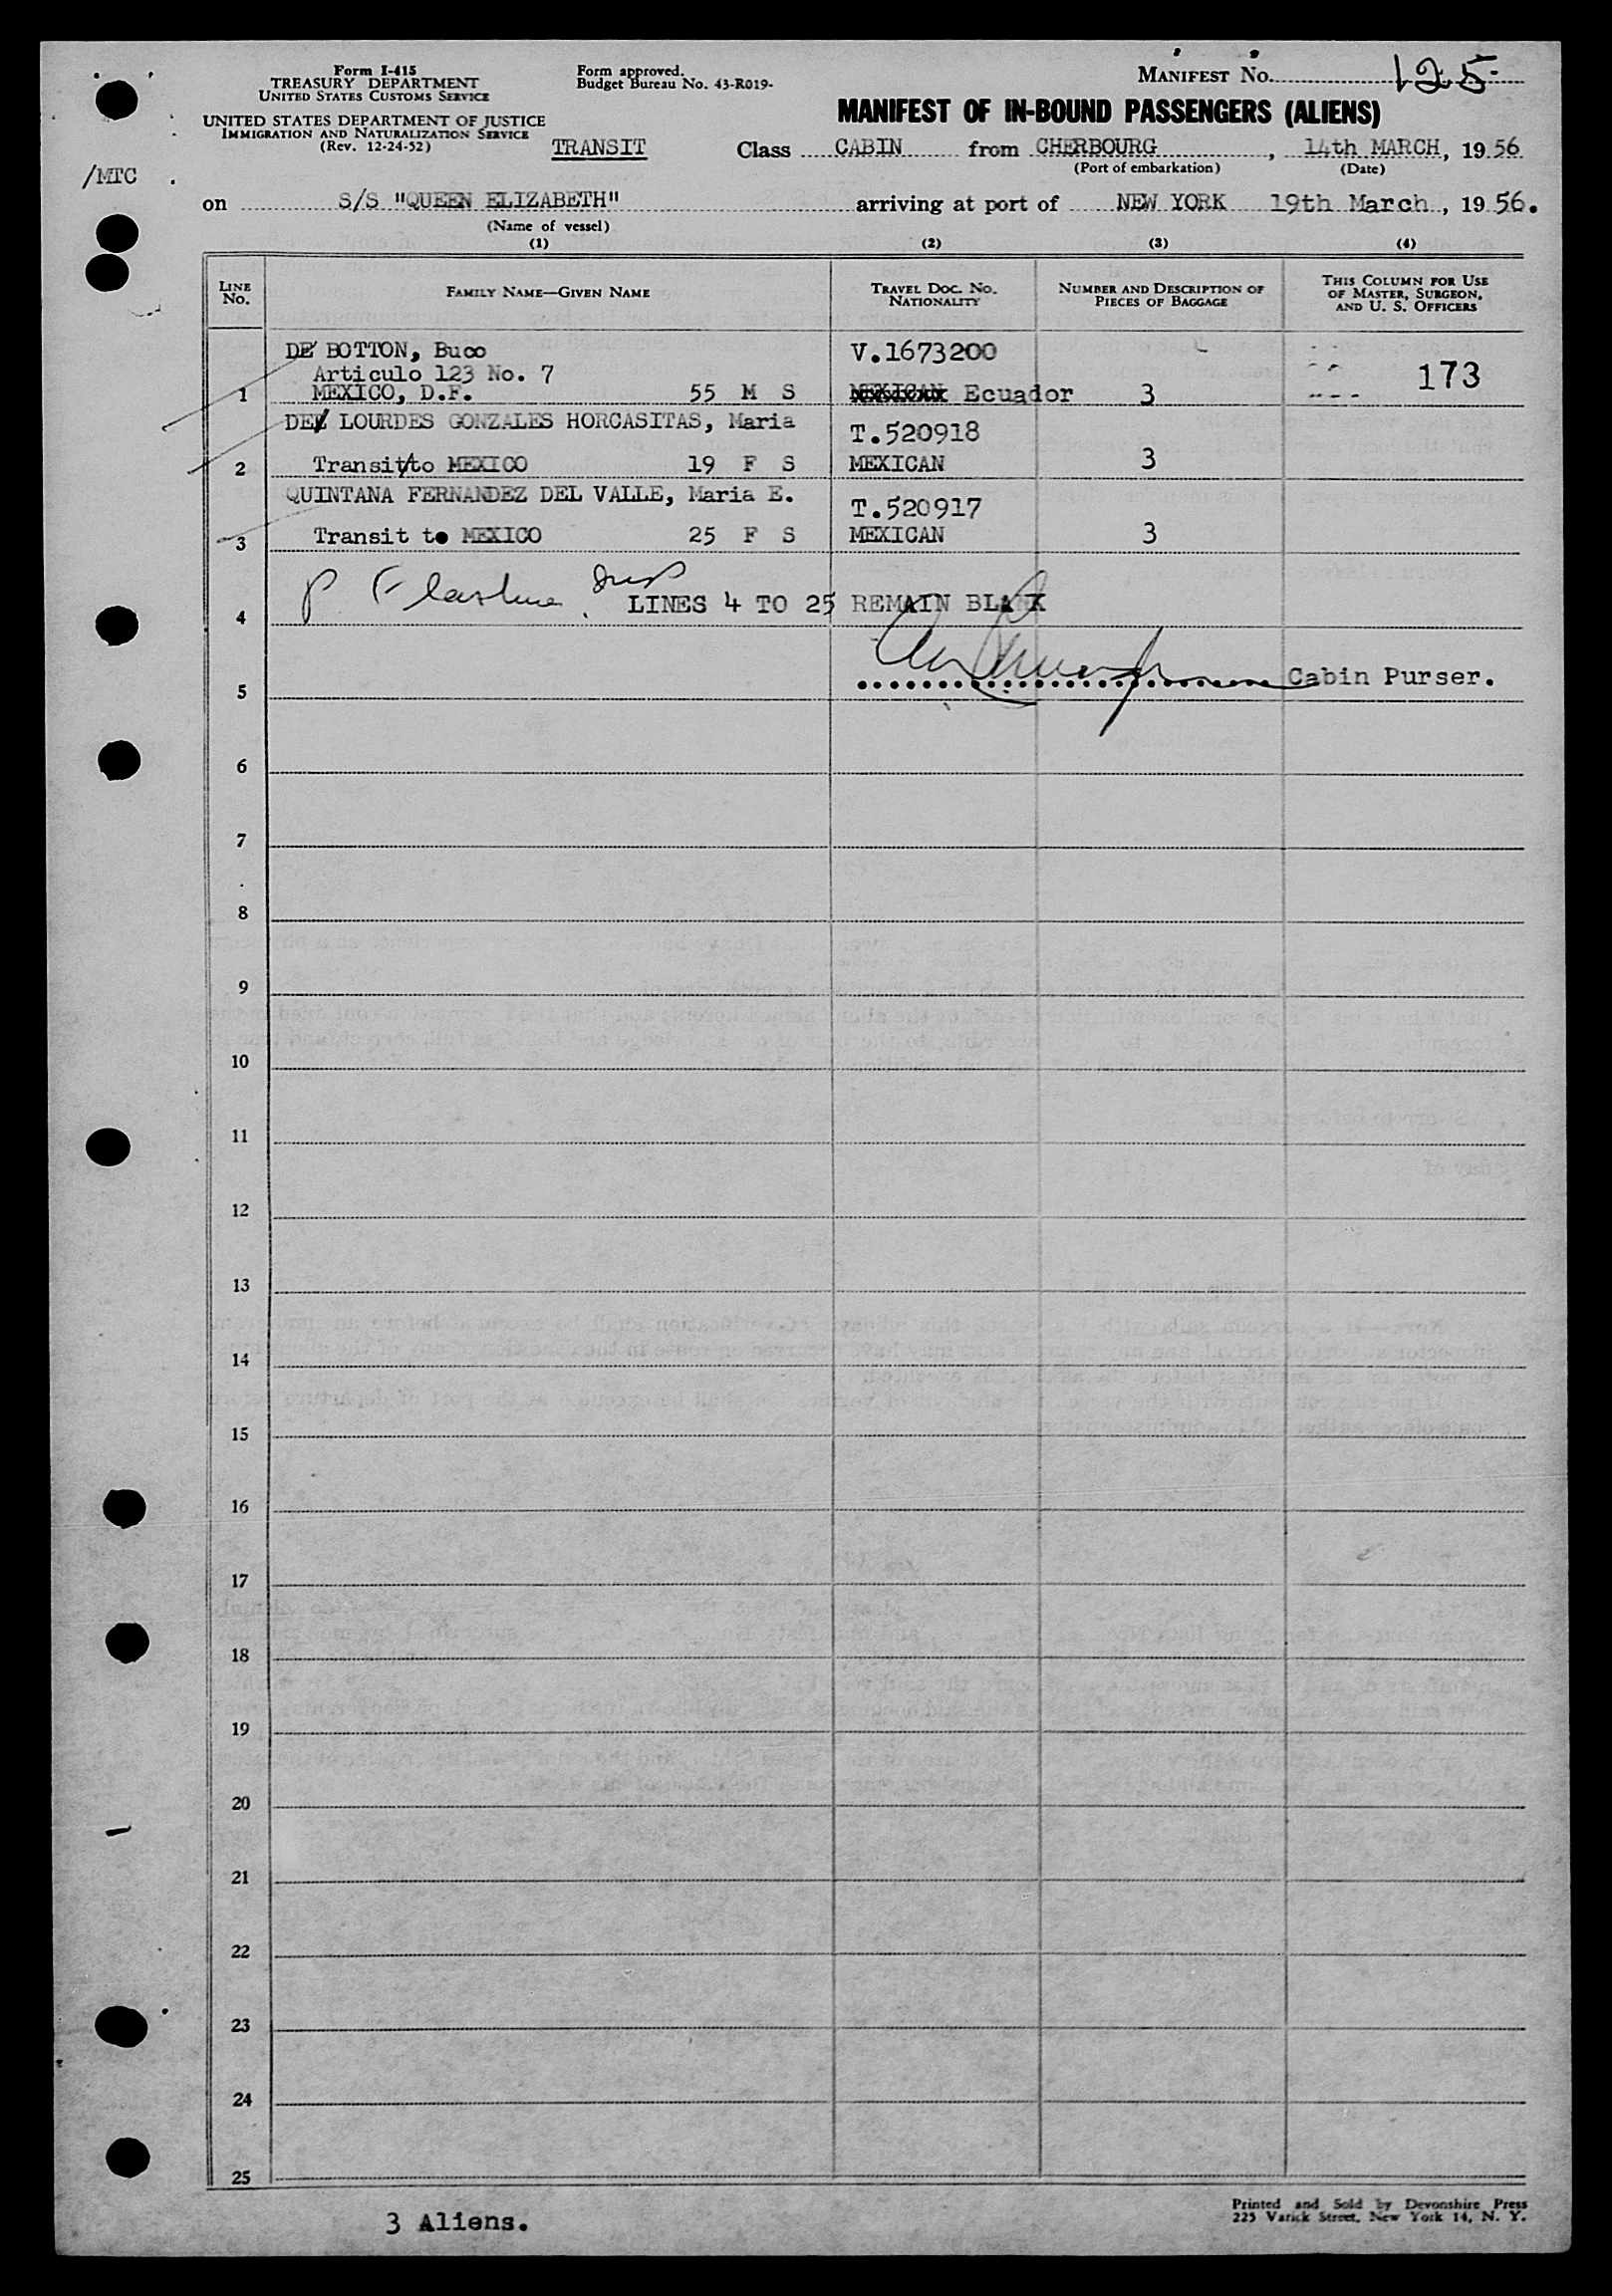 Form I-415
TREASURY DEPARTMENT
UNITED STATES CUSTOMS SERVICE
UNITED STATES DEPARTMENT OF JUSTICE
IMMIGRATION AND NATURALIZATION SERVICE
(Rev. 12-24-52)
Form approved.
Budget Bureau No. 43-R019-
MANIFEST NO. 125
MANIFEST OF IN-BOUND PASSENGERS (ALIENS)
TRANSIT Class CABIN from CHERBOURG, 14th MARCH, 19 56
(Port of embarkation) (Date)
/MTC
on S/S "QUEEN ELIZABETH" arriving at port of NEW YORK 19th March, 19 56.
(Name of vessel)
(1) (2) (3) (4)
LINE NO. FAMILY NAME—GIVEN NAME TRAVEL DOC. NO. NATIONALITY NUMBER AND DESCRIPTION OF PIECES OF BAGGAGE THIS COLUMN FOR USE OF MASTER, SURGEON, AND U. S. OFFICERS
DE BOTTON, Buco V.1673200
Articulo 123 No. 7 173
1 MEXICO, D.F. 55 M S MEXICAN Ecuador 3
DE LOURDES GONZALES HORCASITAS, Maria T.520918
2 Transit to MEXICO 19 F S MEXICAN 3
QUINTANA FERNANDEZ DEL VALLE, Maria E. T.520917
3 Transit to MEXICO 25 F S MEXICAN 3
4 LINES 4 TO 25 REMAIN BLANK
5 Cabin Purser.
6
7
8
9
10
11
12
13
14
15
16
17
18
19
20
21
22
23
24
25
3 Aliens.
Printed and Sold by Devonshire Press
225 Varick Street, New York 14, N. Y.